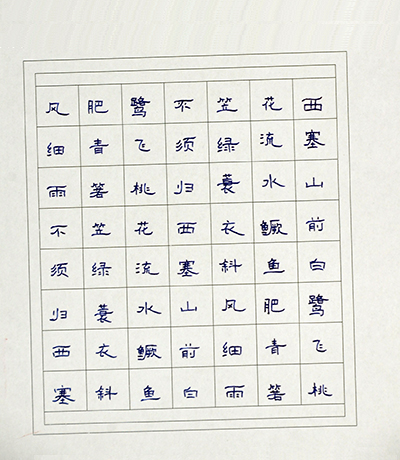 西塞山前白鹭飞桃
花流水鳜鱼肥青箬
笠绿蓑衣斜风细雨
不须归西塞山前白
鹭飞桃花流水鳜鱼
肥青箬笠绿蓑衣斜
风细雨不须归西塞